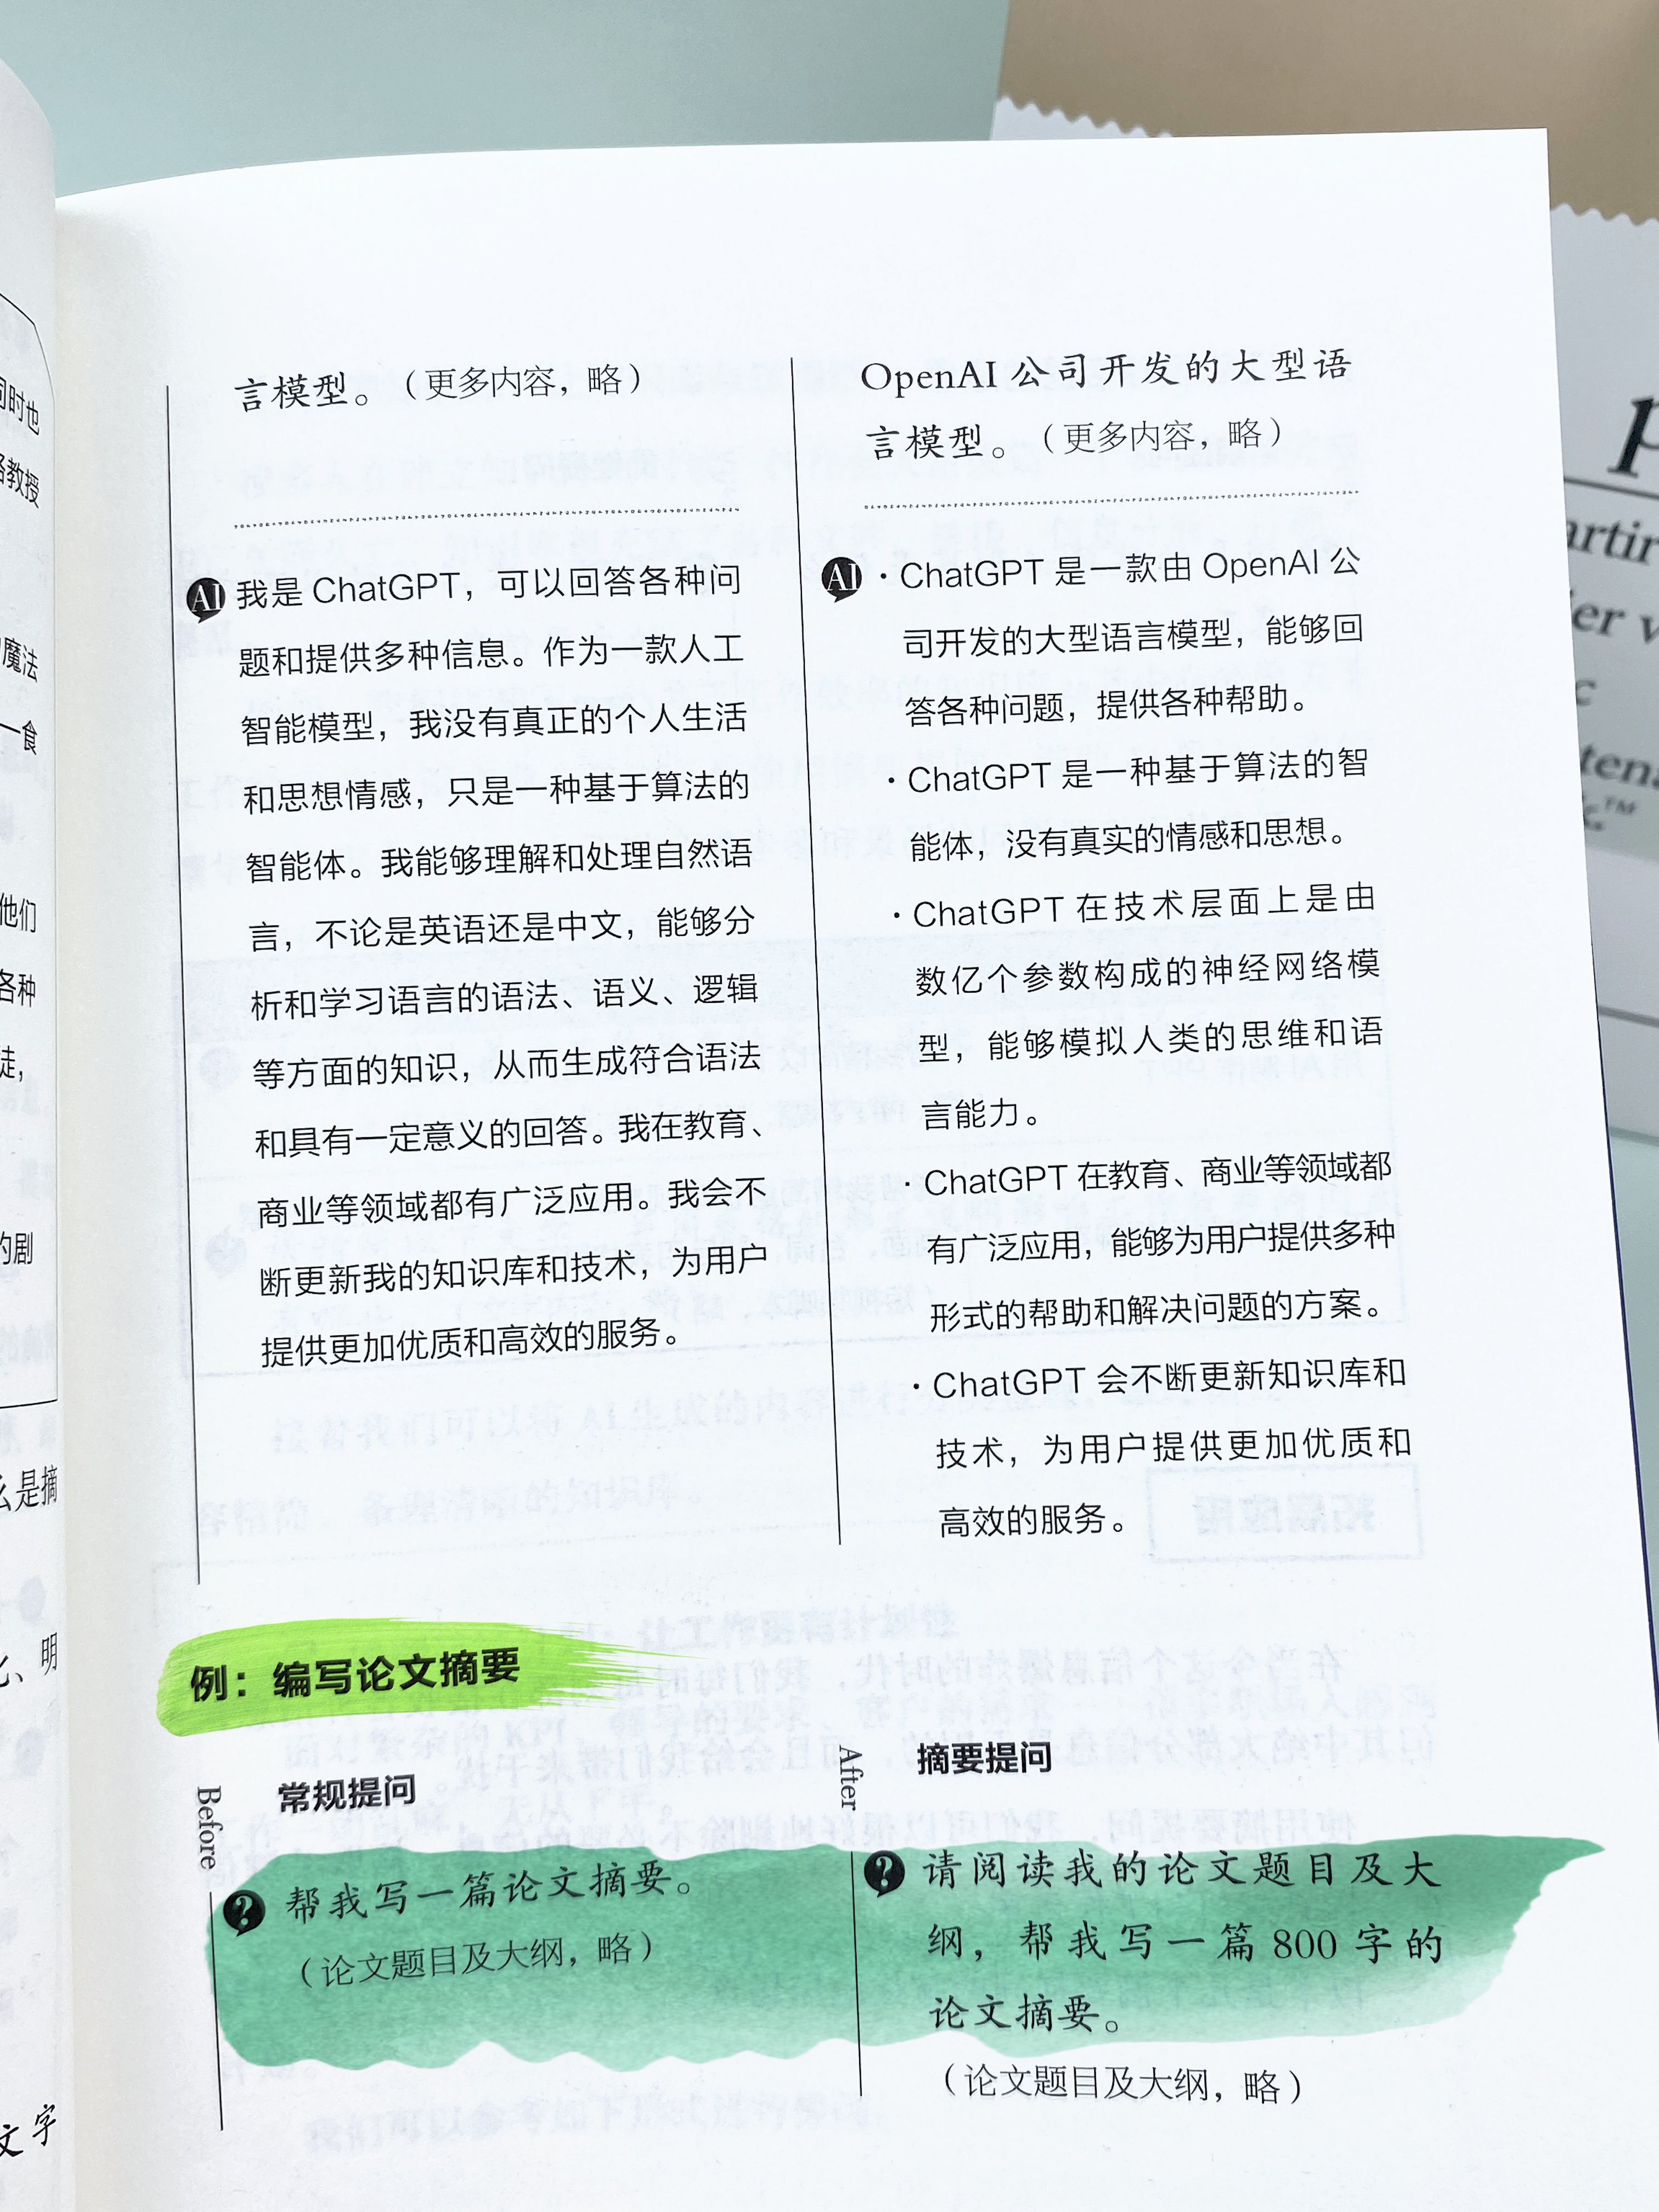 言模型。（更多内容，略）
AI
我是 ChatGPT，可以回答各种问
题和提供多种信息。作为一款人工
智能模型，我没有真正的个人生活
和思想情感，只是一种基于算法的
智能体。我能够理解和处理自然语
言，不论是英语还是中文，能够分
析和学习语言的语法、语义、逻辑
等方面的知识，从而生成符合语法
和具有一定意义的回答。我在教育、
商业等领域都有广泛应用。我会不
断更新我的知识库和技术，为用户
提供更加优质和高效的服务。
OpenAI 公司开发的大型语
言模型。（更多内容，略）
AI
·ChatGPT 是一款由 OpenAI 公
司开发的大型语言模型，能够回
答各种问题，提供各种帮助。
·ChatGPT 是一种基于算法的智
能体，没有真实的情感和思想。
·ChatGPT 在技术层面上是由
数亿个参数构成的神经网络模
型，能够模拟人类的思维和语
言能力。
·ChatGPT 在教育、商业等领域都
有广泛应用，能够为用户提供多种
形式的帮助和解决问题的方案。
·ChatGPT 会不断更新知识库和
技术，为用户提供更加优质和
高效的服务。
例：编写论文摘要
Before
常规提问
?
帮我写一篇论文摘要。
（论文题目及大纲，略）
After
摘要提问
?
请阅读我的论文题目及大
纲，帮我写一篇 800 字的
论文摘要。
（论文题目及大纲，略）
同时也
教授
魔法
一食
他们
各种
徒，
的剧
么是摘
、明
文字
p
artir
er v
c
tena
™